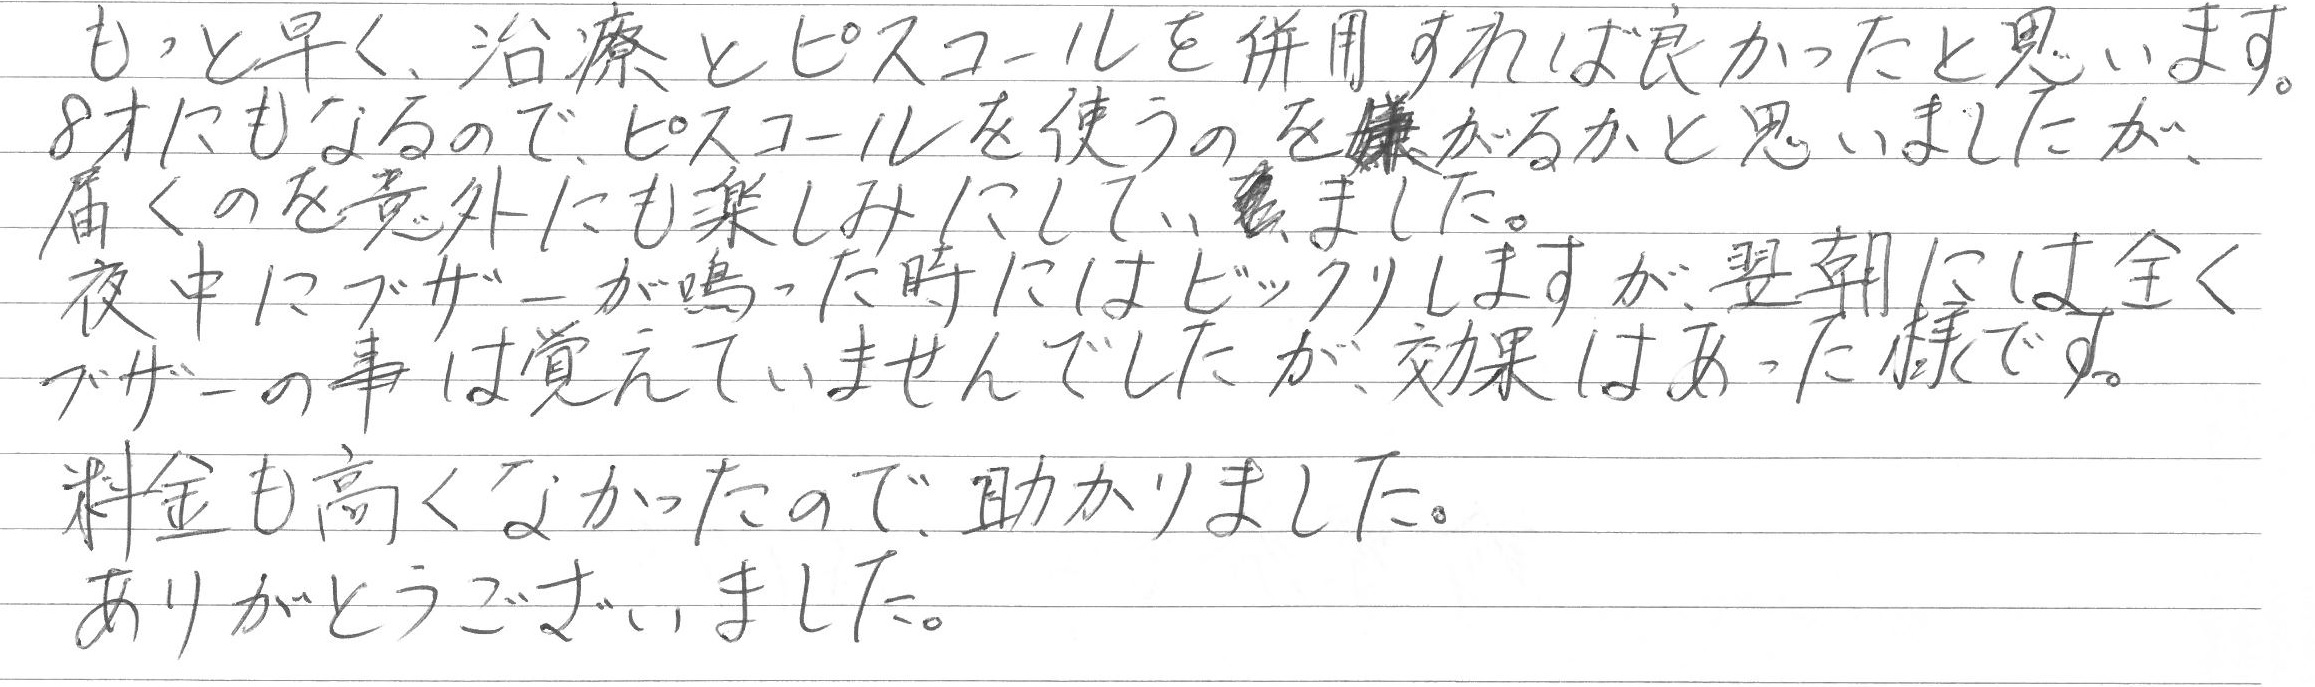 もっと早く、治療とピスコールを併用すれば良かったと思います。
8才にもなるので、ピスコールを使うのを嫌がるかと思いましたが、
届くのを意外にも楽しみにしていました。
夜中にブザーが鳴った時にはビックリしますが、翌朝には全く
ブザーの事は覚えていませんでしたが、効果はあった様です。
料金も高くなかったので、助かりました。
ありがとうございました。